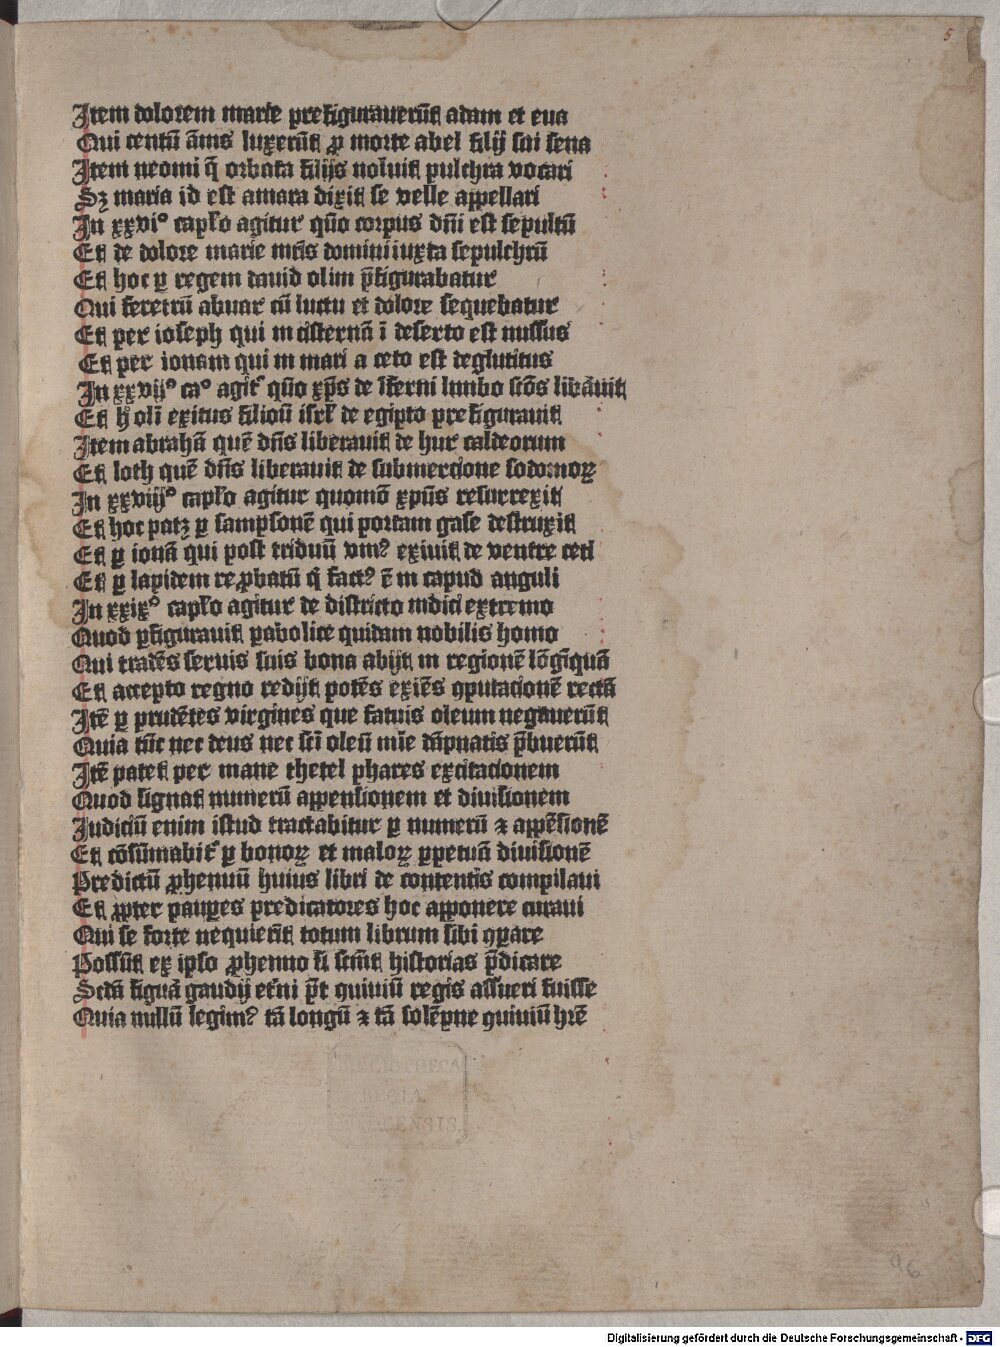 5
Item dolorem marie prefigurauerūt adam et eua
Qui centū ānis luxerūt ꝓ morte abel filij sui sena
Item neomi q̄ orbata filijs noluit pulchra vocari
Sꝫ maria id est amara dixit se velle appellari
In xxvi° caplo agitur quō corpus dn̄i est sepultū
Et de dolore marie mr̄is domini iuxta sepulchrū
Et hoc ꝑ regem dauid olim p̄figurabatur
Qui feretrū abnar cū luctu et dolore sequebatur
Et per ioseph qui in cisternā ī deserto est missus
Et per ionam qui in mari a ceto est deglutitus
In xxvij° ca° agit᷑ quō xp̄s de īferni limbo scōs libāuit
Et h̄ olī exitus filioū isrl̄ de egipto prefigurauit
Item abrahā quē dn̄s liberauit de hur caldeorum
Et loth quē dn̄s liberauit de submercione sodomoꝝ
In xxviij° caplo agitur quomō xp̄us resurrexit
Et hoc patꝫ ꝑ sampsonē qui portam gase destruxit
Et ꝑ ionā qui post triduū viuꝰ exiuit de ventre ceti
Et ꝑ lapidem reꝓbatū q̄ factꝰ ē in capud anguli
In xxix° caplo agitur de districto iudici extremo
Quod p̄figurauit ꝑabolice quidam nobilis homo
Qui tradēs seruis suis bona abijt in regionē lōgīquā
Et accepto regno redijt potēs exiēs ꝯputacionē rectā
Itē ꝑ prudētes virgines que fatuis oleum negauerūt
Quia tūc nec deus nec scī oleū mīe dāpnatis p̄buerūt
Itē patet per mane thetel phares excitacionem
Quod signat numerū appensionem et diuisionem
Judiciū enim istud tractabitur ꝑ numerū ⁊ appēsionē
Et cōsūmabit᷑ ꝑ bonoꝝ et maloꝝ ꝑpetuā diuisionē
Predictū ꝓhemiū huius libri de contentis compilaui
Et ꝓpter paupes predicatores hoc apponere curaui
Qui se forte nequierīt totum librum sibi ꝯꝑare
Possūt ex ipso ꝓhemio si sciūt historias p̄dicare
Scdā figurā gaudij et᷑ni p̄t ꝯuiuiū regis assueri fuisse
Quia nullū legimꝰ tā longū ⁊ tā solēpne ꝯuiuiū hr̄e
BIBLIOTHECA
REGIA
MONACENSIS.
Digitalisierung gefördert durch die Deutsche Forschungsgemeinschaft - DFG